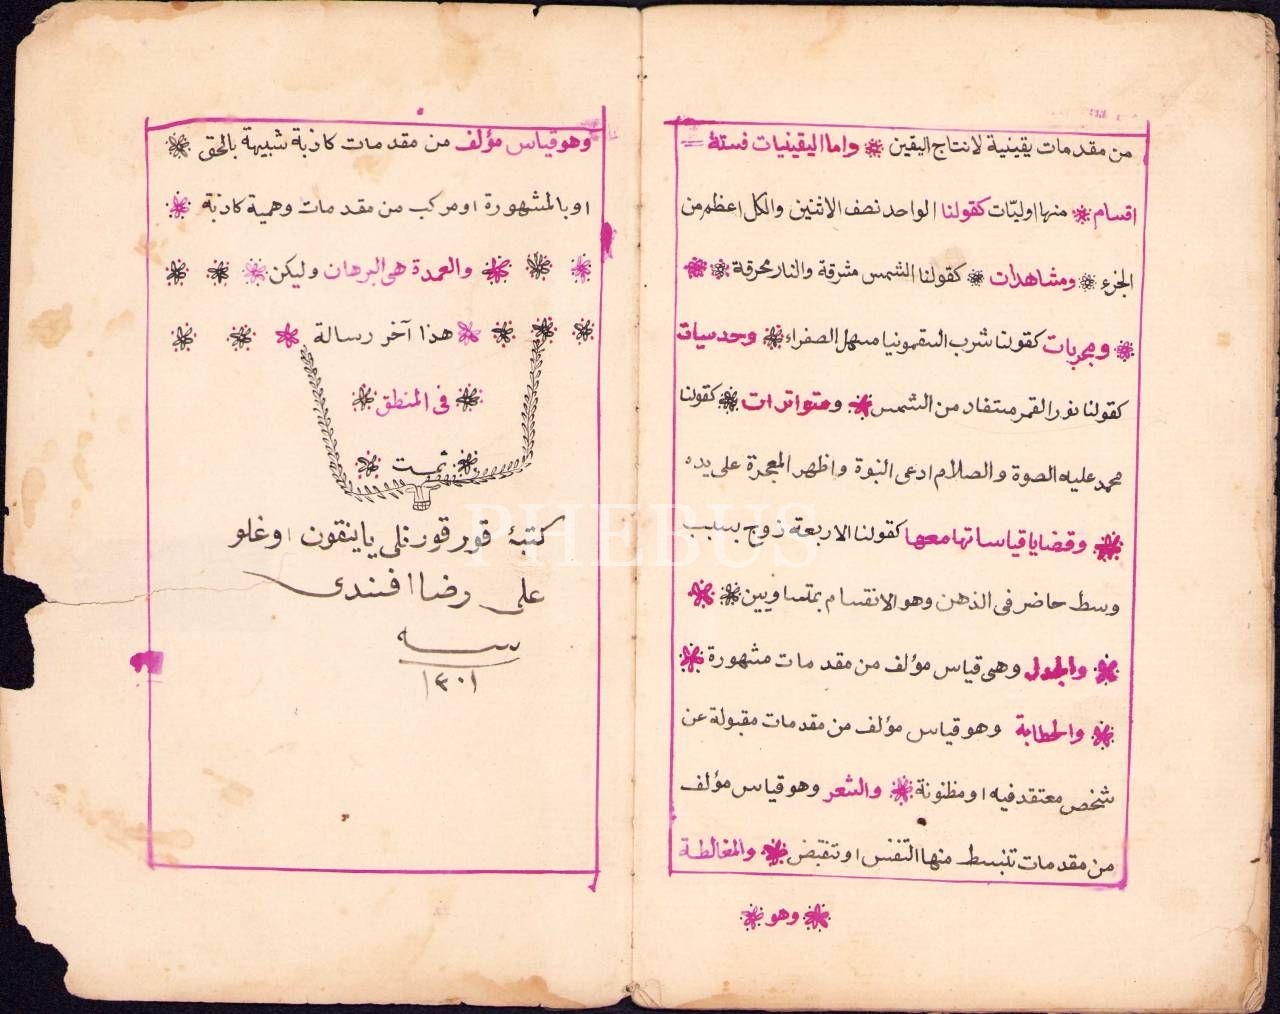 من مقدمات يقينية لانتاج اليقين واما اليقينيات فستة
اقسام منها اوليّات كقولنا الواحد نصف الاثنين والكل اعظم من
الجزء ومشاهدات كقولنا الشمس مشرقة والنار محرقة
ومجربات كقولنا شرب السقمونيا مسهل الصفراء وحدسيات
كقولنا نور القمر مستفاد من الشمس ومتواترات كقولنا
محمد عليه الصوة والصلام ادعى النبوة واظهر المعجزة على يده
وقضايا قياساتها معها كقولنا الاربعة زوج بسبب
وسط حاضر فى الذهن وهو الانقسام بمتساويين
والجدل وهى قياس مؤلف من مقدمات مشهورة
والخطابة وهو قياس مؤلف من مقدمات مقبولة عن
شخص معتقد فيه او مظنونة والشعر وهو قياس مؤلف
من مقدمات تنبسط منها النفس او تنقبض والمغالطة
وهو
وهو قياس مؤلف من مقدمات كاذبة شبيهة بالحق
او بالمشهورة او مركب من مقدمات وهمية كاذبة
والعمدة هى البرهان وليكن
هذا آخر رسالة
فى المنطق
تمت
كتبهٔ قور قورنلى ياينقون اوغلو
على رضا افندى
سنه
١٣٠١
PHEBUS